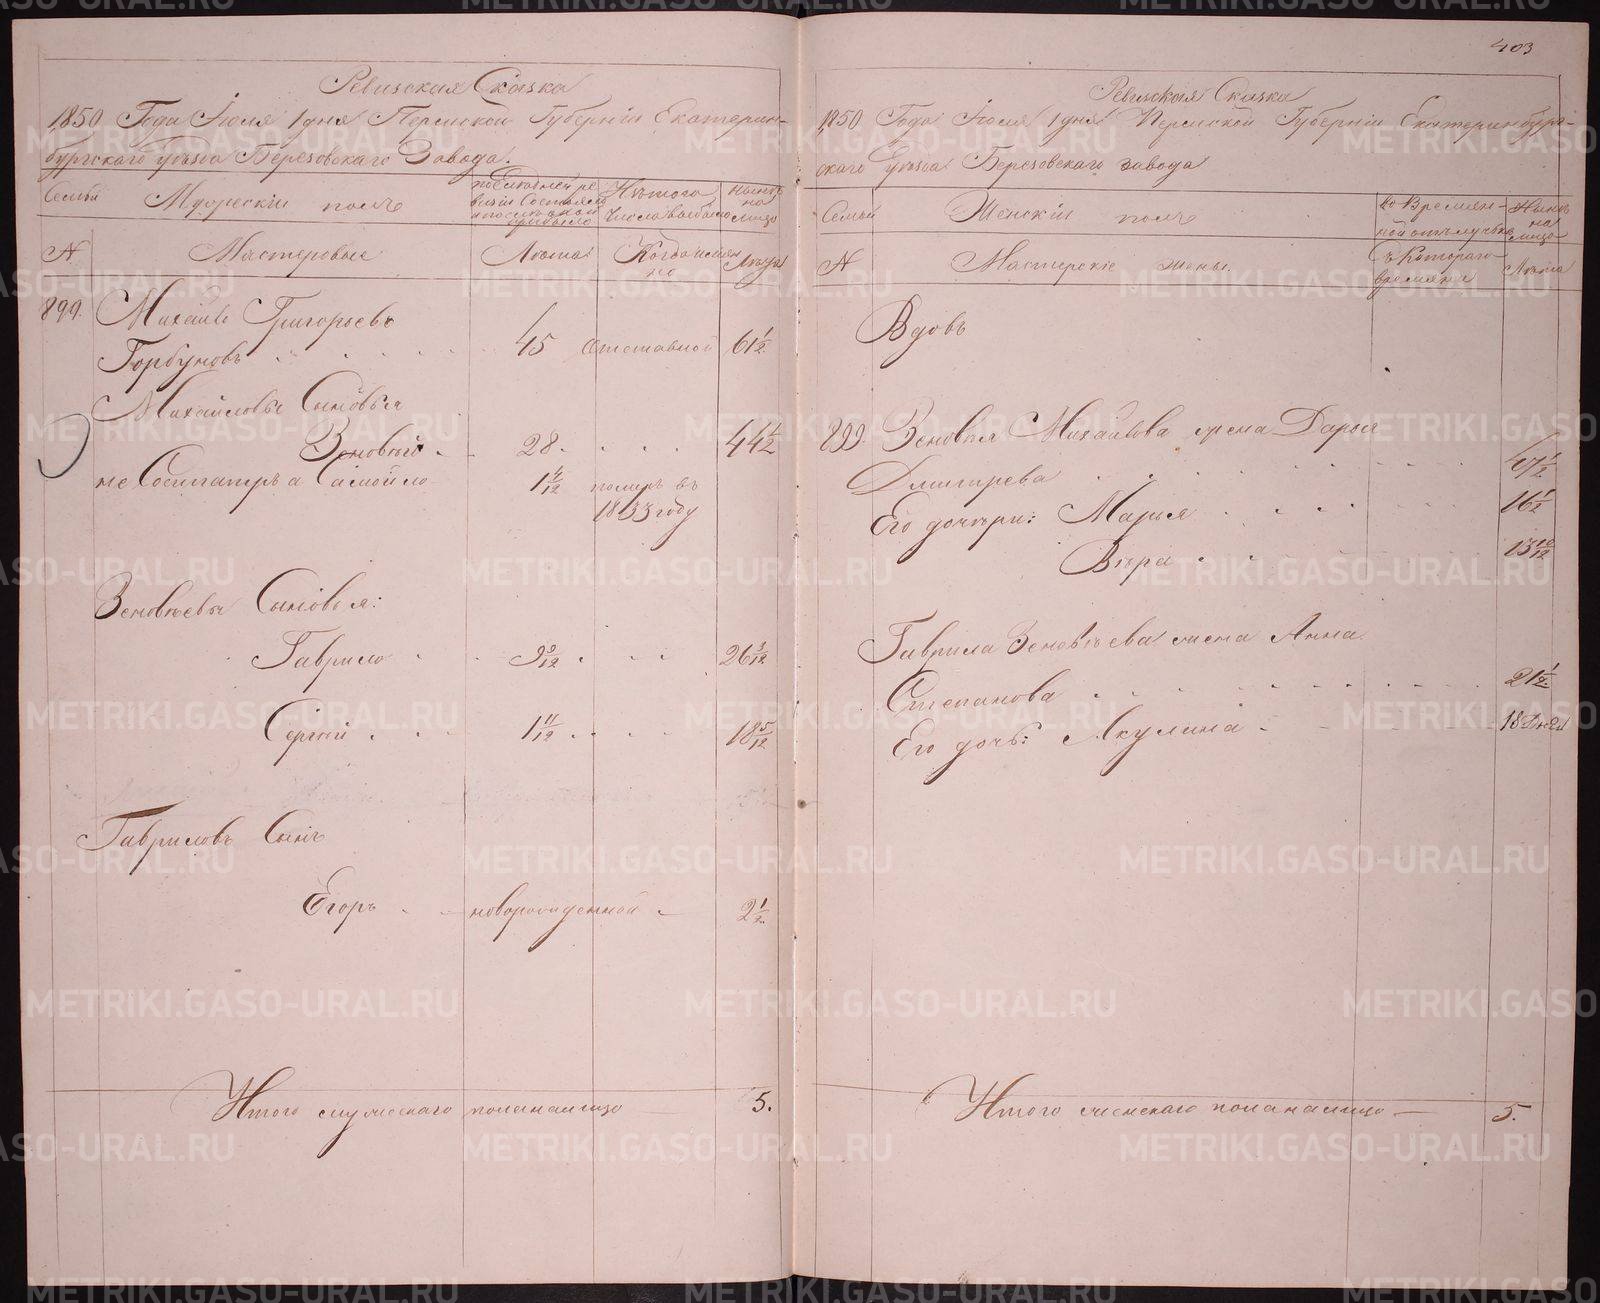 Ревизская Сказка
1850 Года Іюля 1 дня Пермской Губерніи Екатерин-
бургскаго уѣзда Березовскаго Завода.
Семьи
Мужескій полъ
по Последней ре
визіи Состояло
и после оной
прибыло
Изъ того
Числа выбыло
Нынѣ
на
лицо
N
Мастеровые
Лѣта
Когда имян
но
Лѣта
899.
Михайло Григорьевъ
Горбуновъ
45
отставной
61 1/2
Михайловы Сыновья
Зеновий
28.
44 1/2
не Сосипатръ а Самойло
1 4/12
помръ въ
1833 году
Зеновьевы Сыновья:
Гаврило
9 9/12
26 3/12
Сергѣй
1 11/12
18 5/12
Гавриловъ Сынъ
Егоръ
новорожденной
2 1/2
Итого мужескаго пола на лицо
5.
403
Ревизская Сказка
1850 Года Іюля 1 дня Пермской Губерніи Екатеринбург-
скаго Уѣзда Березовскаго завода
Семьи
Женскій полъ
Во Времян-
ной отлучкѣ
Нынѣ
на
лицо
N
Мастерскіе жены.
Съ Котораго
времяни
Лѣта
Вдовъ
899
Зеновья Михайлова жена Дарья
Дмитрева
47 1/2
Его дочери: Марья
16 1/2
Вѣра
13 10/12
Гаврила Зеновьева жена Анна
Степанова
21 1/2
Его дочь: Акулина
18 Дней
Итого женскаго пола на лицо
5.
METRIKI.GASO-URAL.RU